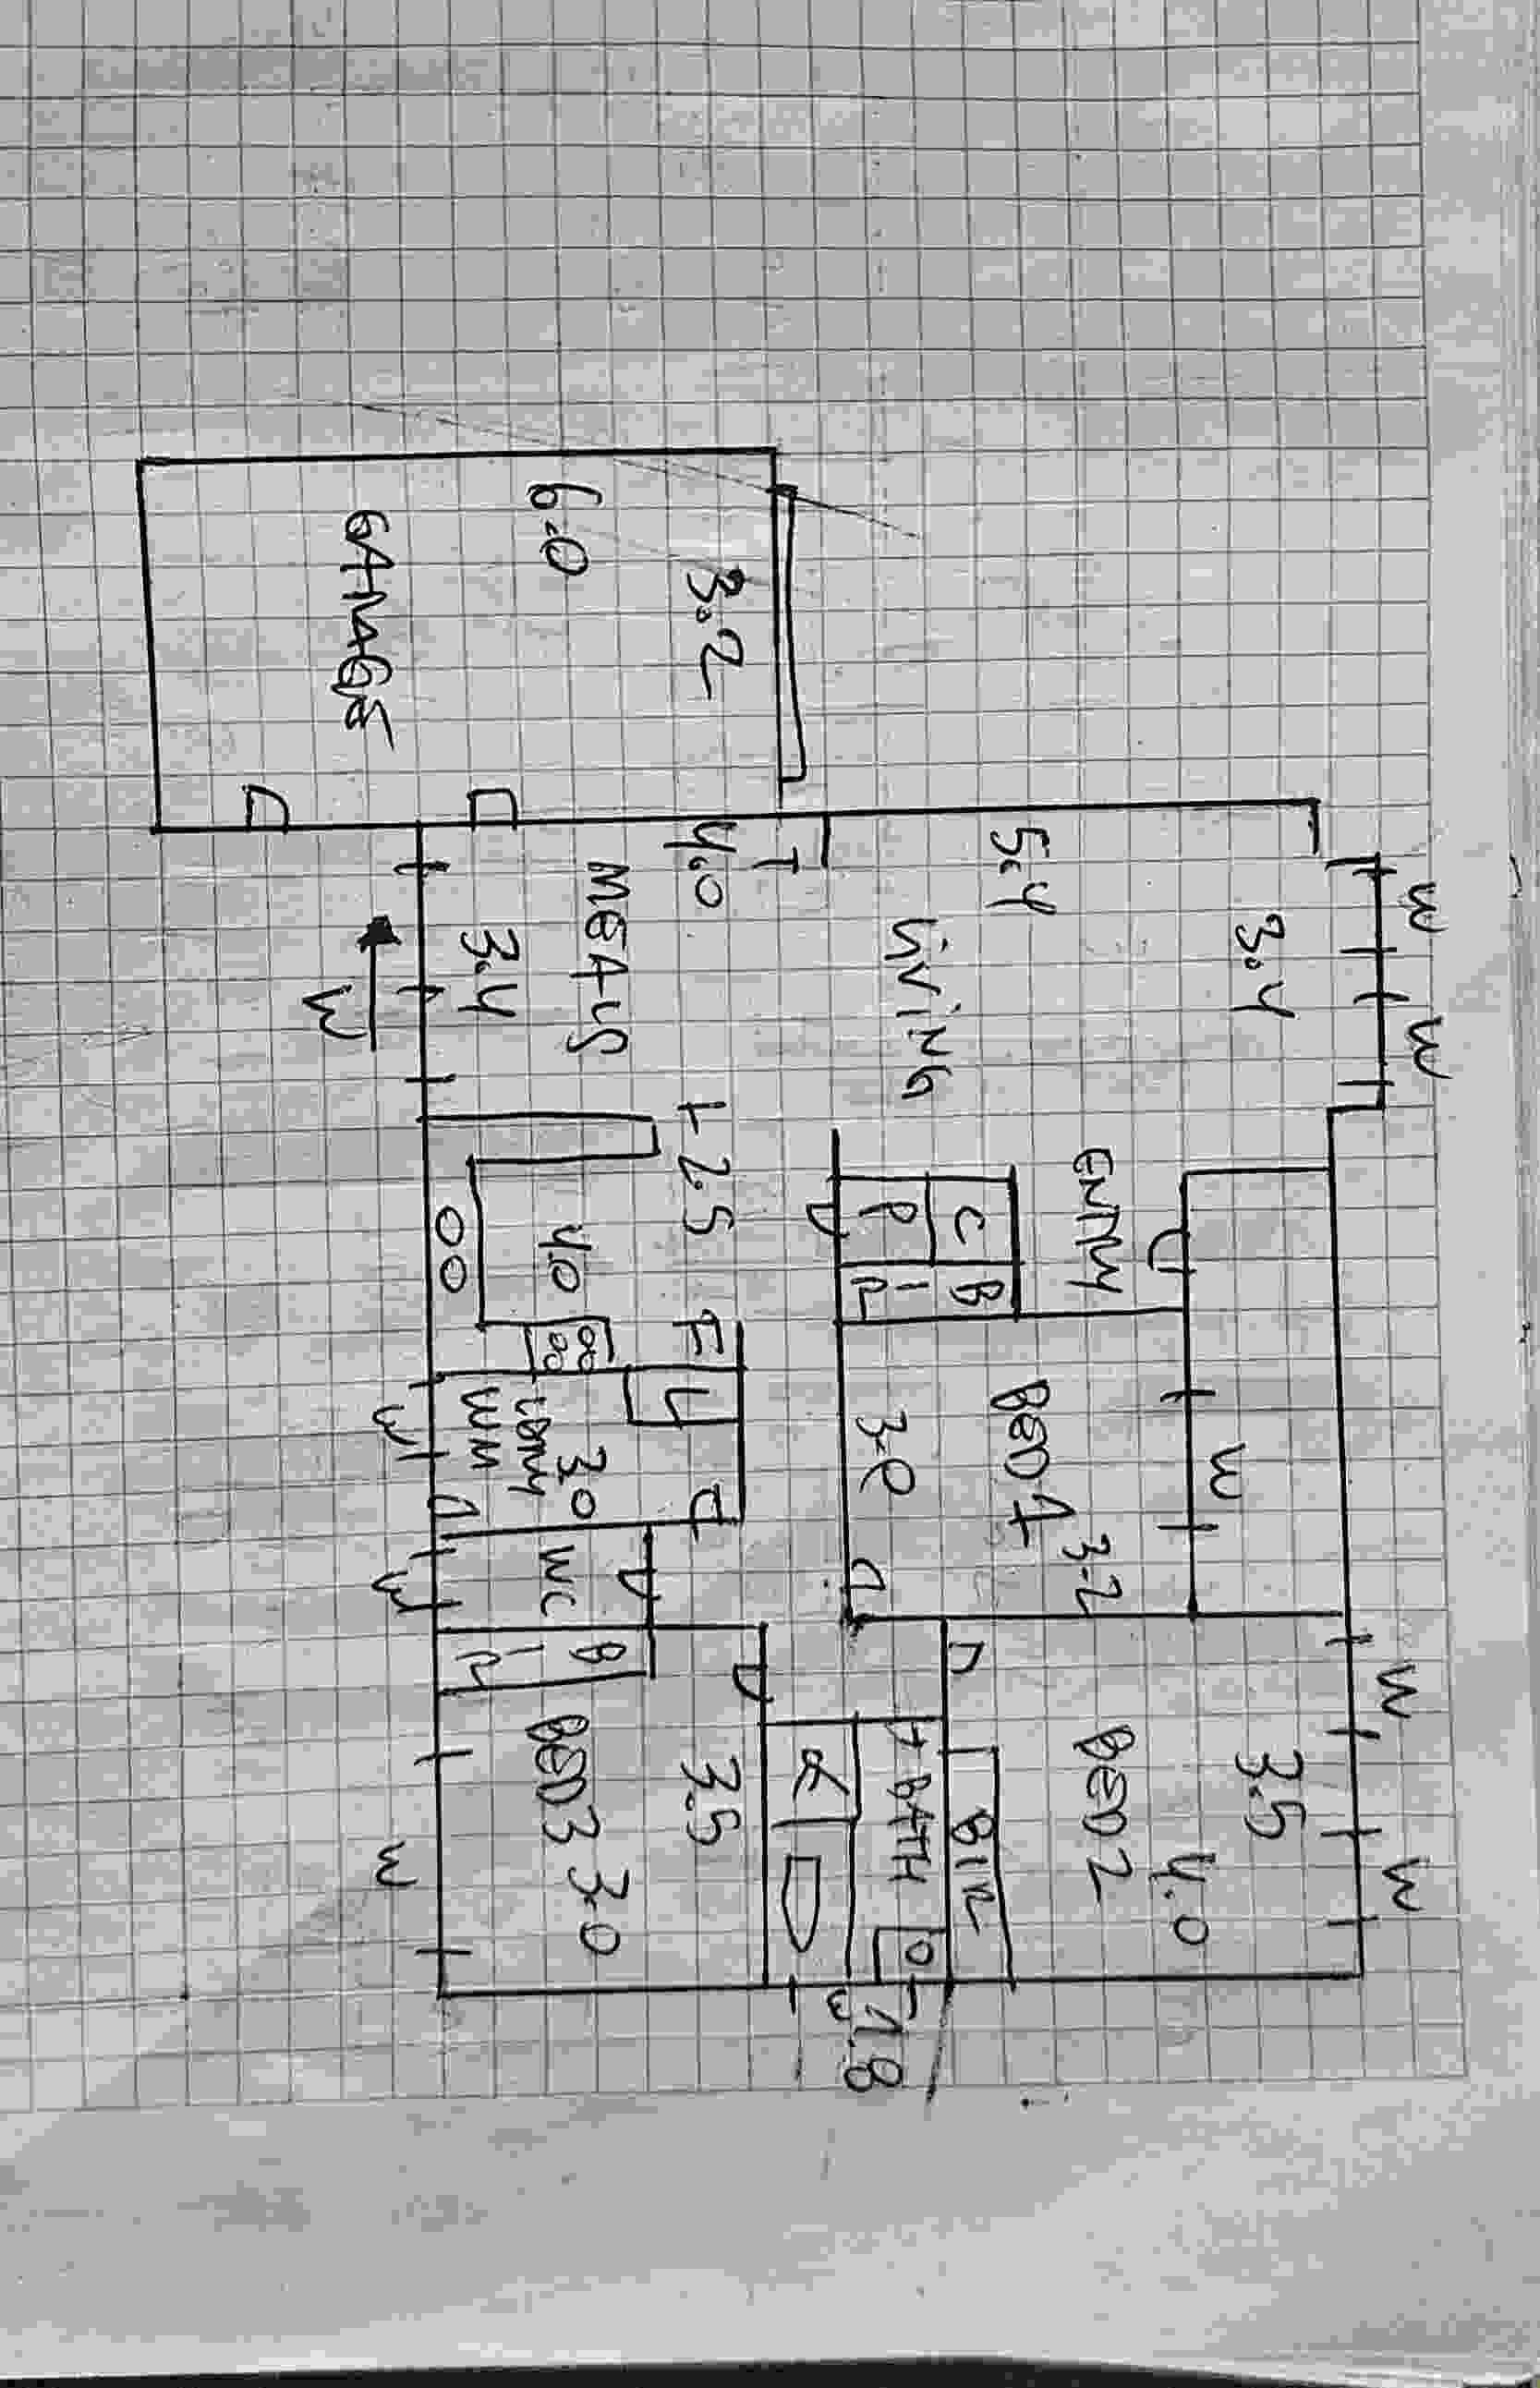 W
W
3.4
5.4
LIVING
T
4.0
MEALS
3.4
W
6.0
3.2
GARAGE
ENTRY
C
P
B
I
R
W
BED 1
3.2
3.0
2.5
4.0
F
L
3.0
LDRY
WM
W
WC
W
B
I
R
BED 3
3.0
3.5
W
W
W
3.5
4.0
BED 2
BIR
BATH
W
1.8